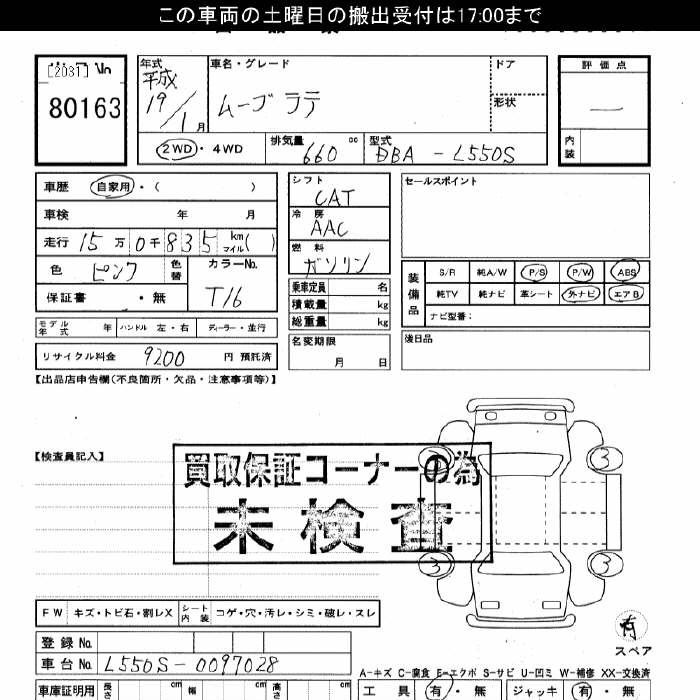 この車両の土曜日の搬出受付は17:00まで
[2031] No
80163
年式
平成
19/1月
車名・グレード
ムーヴ ラテ
ドア
形状
評価点
―
内装
2WD・4WD
排気量
660 cc
型式
DBA-L550S
車歴 自家用・( )
車検 年 月
走行 15万0千835 km マイル( )
色 ピンク 色替
カラーNo.
T16
保証書 ・無
モデル年式 年 ハンドル 左・右 ディーラー・並行
リサイクル料金 9200 円 預託済
シフト
CAT
冷房
AAC
燃料
ガソリン
乗車定員 名
積載量 kg
総重量 kg
名変期限
月 日
セールスポイント
装備品
S/R 純A/W P/S P/W ABS
純TV 純ナビ 革シート 外ナビ エアB
ナビ型番:
後日品
【出品店申告欄(不良箇所・欠品・注意事項等)】
【検査員記入】
買取保証コーナーの為
未検査
3 3
3 3
有
スペア
FW キズ・トビ石・割レX シート内装 コゲ・穴・汚レ・シミ・破レ・スレ
登録No.
車台No. L550S-0097028
A-キズ C-腐食 E-エクボ S-サビ U-凹ミ W-補修 XX-交換済
車庫証明用 長さ cm 幅 cm 高さ cm
工具 有・無 ジャッキ 有・無